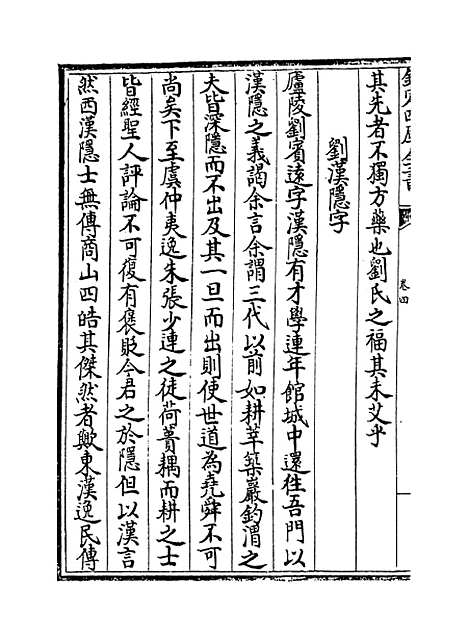 欽定四庫全書
卷四
其先者不獨方藥也劉氏之福其未艾乎
劉漢隱字
廬陵劉賓遠字漢隱有才學連年館城中還往吾門以
漢隱之義謁余言余謂三代以前如耕莘築巖釣渭之
夫皆深隱而不出及其一旦而出則使世道為堯舜不可
尚矣下至虞仲夷逸朱張少連之徒荷蕢耦而耕之士
皆經聖人評論不可復有褒貶今君之於隱但以漢言
然西漢隱士無傳商山四皓其傑然者歟東漢逸民傳